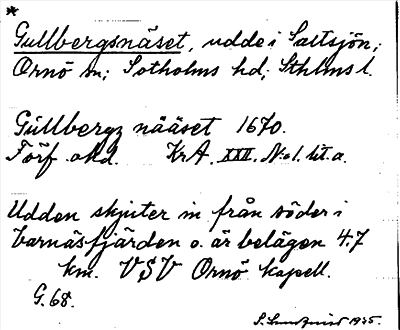 *
Gullbergsnäset, udde i Saltsjön;
Ornö sn; Sotholms hd; Sthlms l.
Gullbergz nääset 1670.
Förf. okd. KrA. XXII. No 1. lit. a.
Udden skjuter in från söder i
Varnäsfjärden o. är belägen 4.7
km. VSV Ornö kapell.
G. 68.
1935.